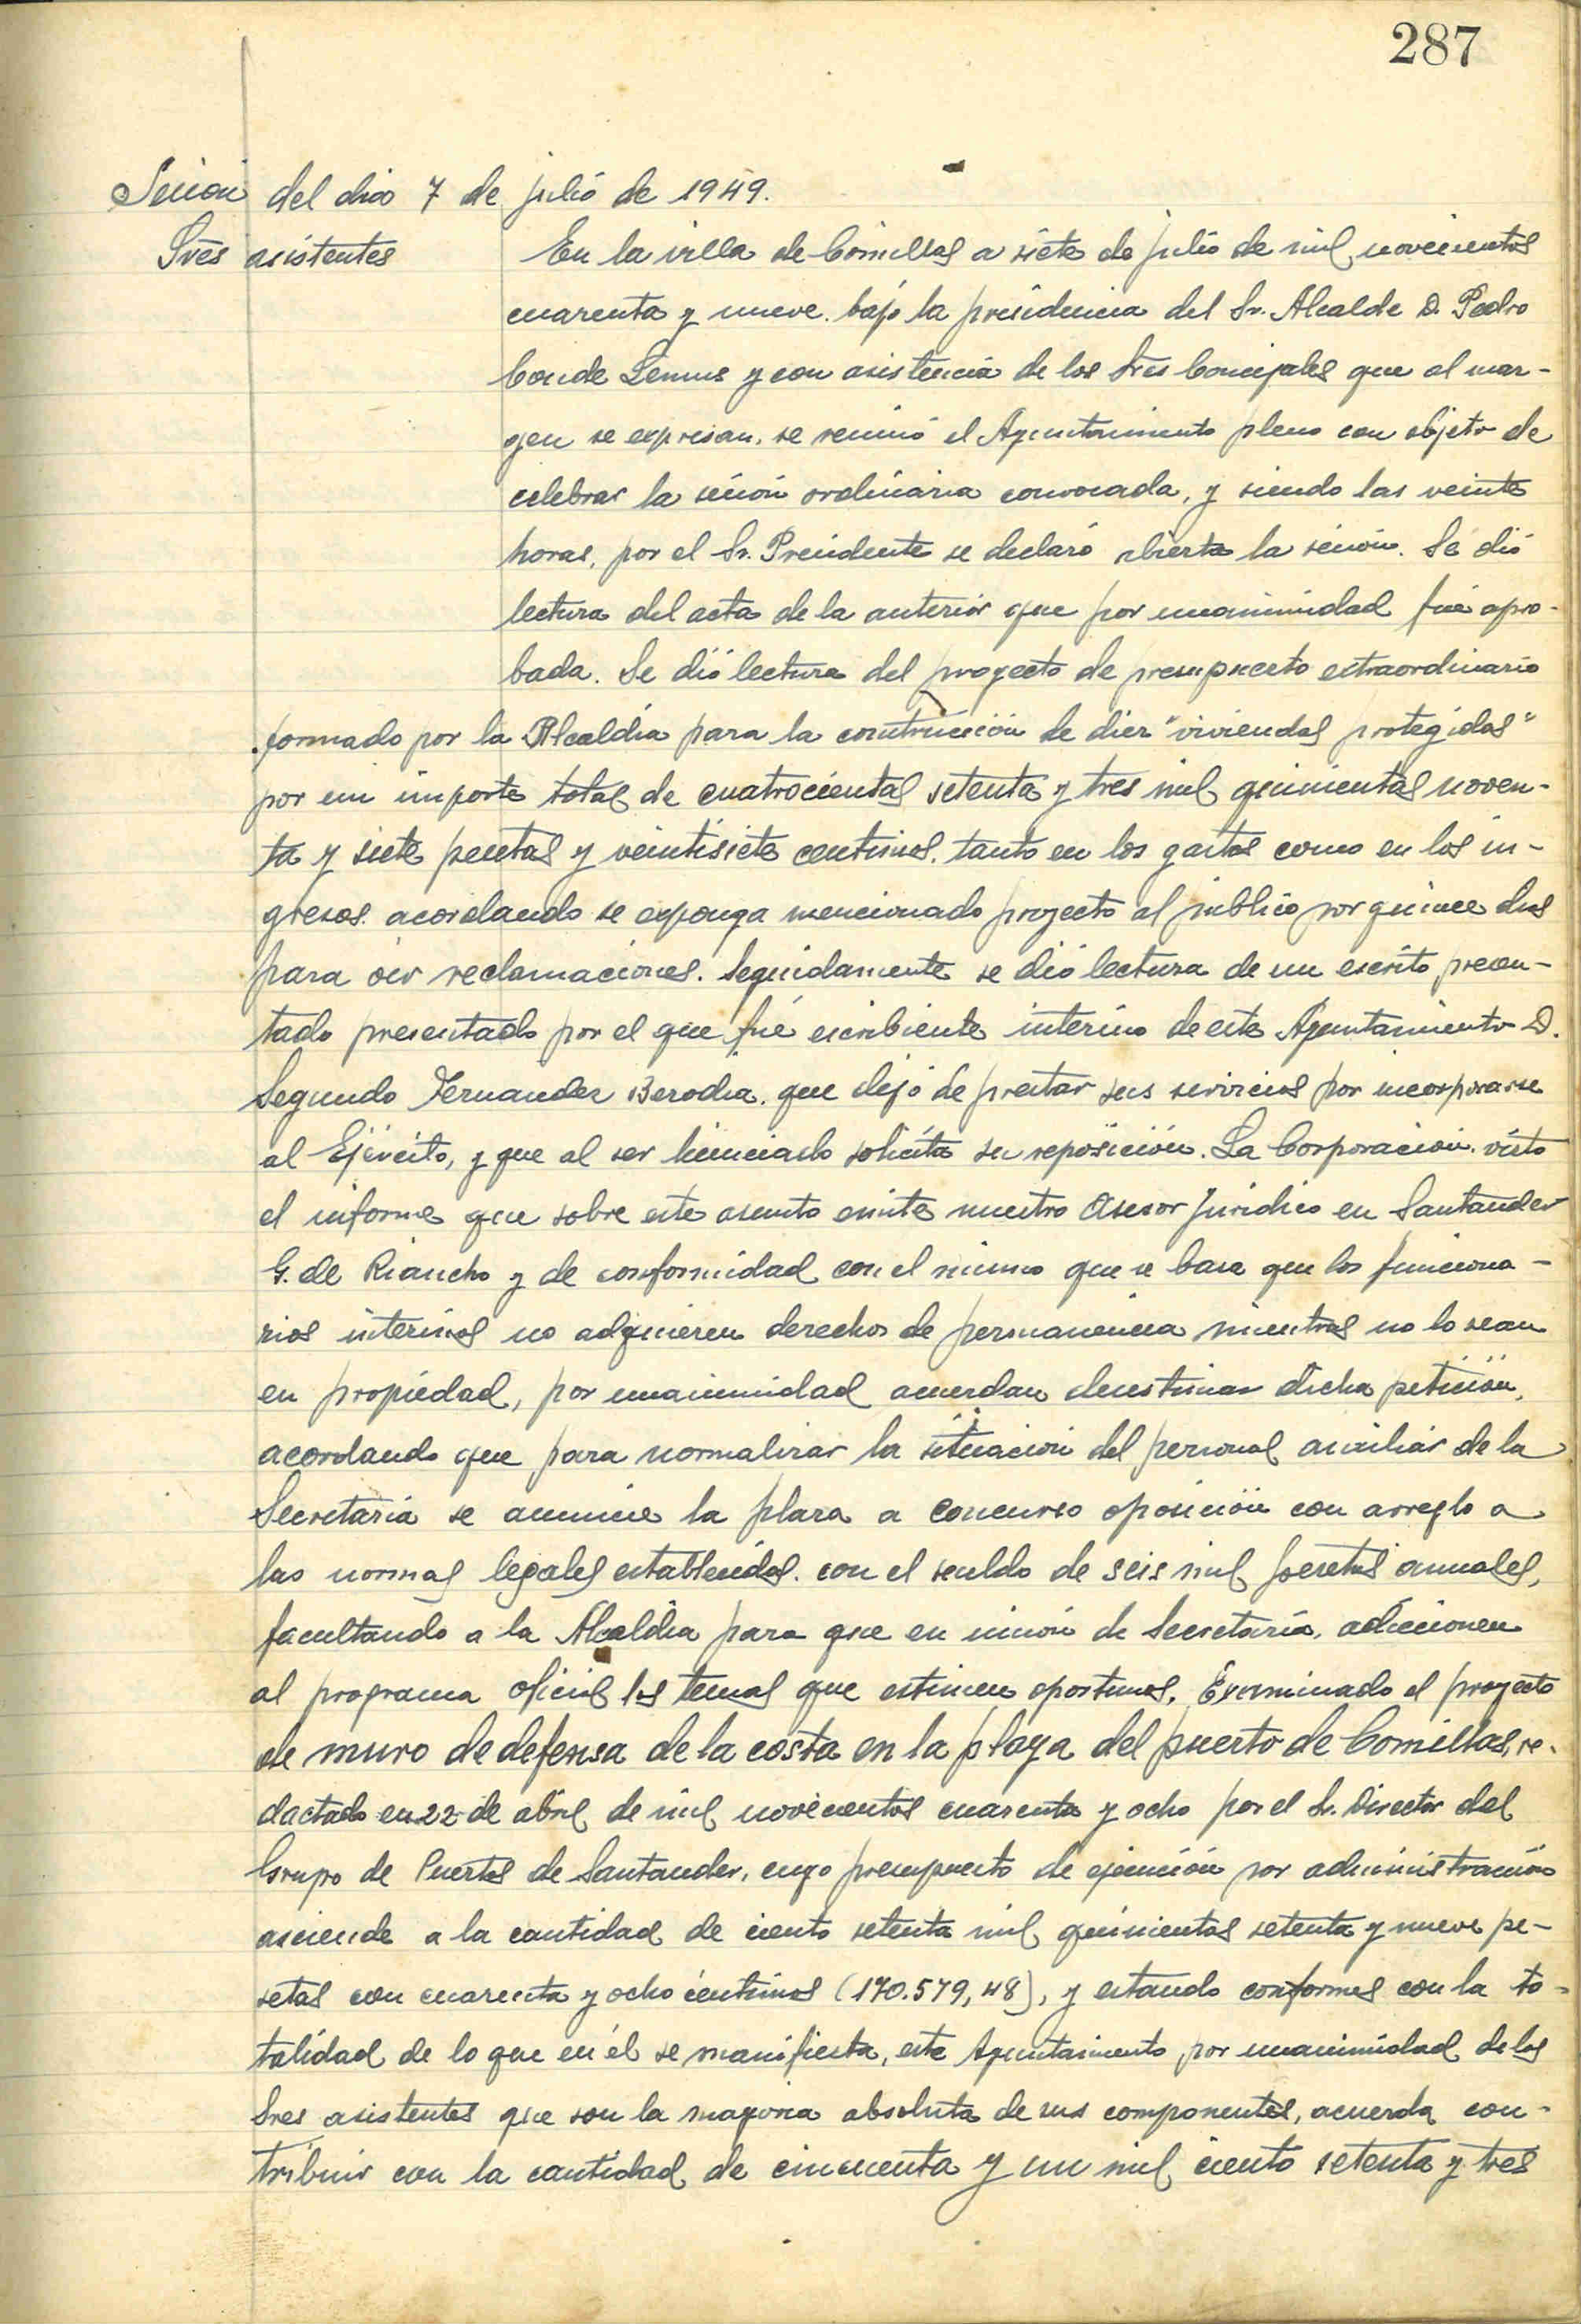 287
Sesión del dia 7 de julio de 1949.
Sres asistentes
En la villa de Comillas a siete de julio de mil novecientos
cuarenta y nueve. bajo la presidencia del Sr. Alcalde D. Pedro
Conde Lemus y con asistencia de los Sres Concejales que al mar-
gen se expresan, se reunió el Ayuntamiento pleno con objeto de
celebrar la sesión ordinaria convocada, y siendo las veinte
horas, por el Sr. Presidente se declaró abierta la sesión. Se dió
lectura del acta de la anterior que por unanimidad fué apro-
bada. Se dió lectura del proyecto de presupuesto extraordinario
formado por la Alcaldia para la construcción de diez "viviendas protegidas"
por un importe total de cuatrocientas setenta y tres mil quinientas noven-
ta y siete pesetas y veintisiete centimos. tanto en los gastos como en los in-
gresos. acordando se exponga mencionado proyecto al público por quince dias
para oir reclamaciones. Seguidamente se dió lectura de un escrito presen-
tado presentado por el que fué escribiente interino de este Ayuntamiento D.
Segundo Fernandez Berodia. que dejó de prestar sus servicios por incorporarse
al Ejército, y que al ser licenciado solicita su reposición. La Corporación. visto
el informe que sobre este asunto emite nuestro Asesor Juridico en Santander
G. de Riancho y de conformidad con el mismo que se basa que los funciona-
rios interinos no adquieren derechos de permanencia mientras no lo sean
en propiedad, por unanimidad acuerdan desestimar dicha petición,
acordando que para normalizar la situación del personal auxiliar de la
Secretaria se anuncie la plaza a concurso oposición con arreglo a
las normas legales establecidas. con el sueldo de seis mil pesetas anuales,
facultando a la Alcaldia para que en unión de Secretaría, adicionen
al programa oficial los temas que estimen oportunos. Examinado el proyecto
de muro de defensa de la costa en la playa del puerto de Comillas, re-
dactado en 22 de abril de mil novecientos cuarenta y ocho por el Sr. Director del
Grupo de Puertos de Santander, cuyo presupuesto de ejecución por administración
asciende a la cantidad de ciento setenta mil quinientas setenta y nueve pe-
setas con cuarenta y ocho céntimos (170.579,48), y estando conformes con la to-
talidad de lo que en él se manifiesta, este Ayuntamiento por unanimidad de los
Sres asistentes que son la mayoria absoluta de sus componentes, acuerda con-
tribuir con la cantidad de cincuenta y un mil ciento setenta y tres